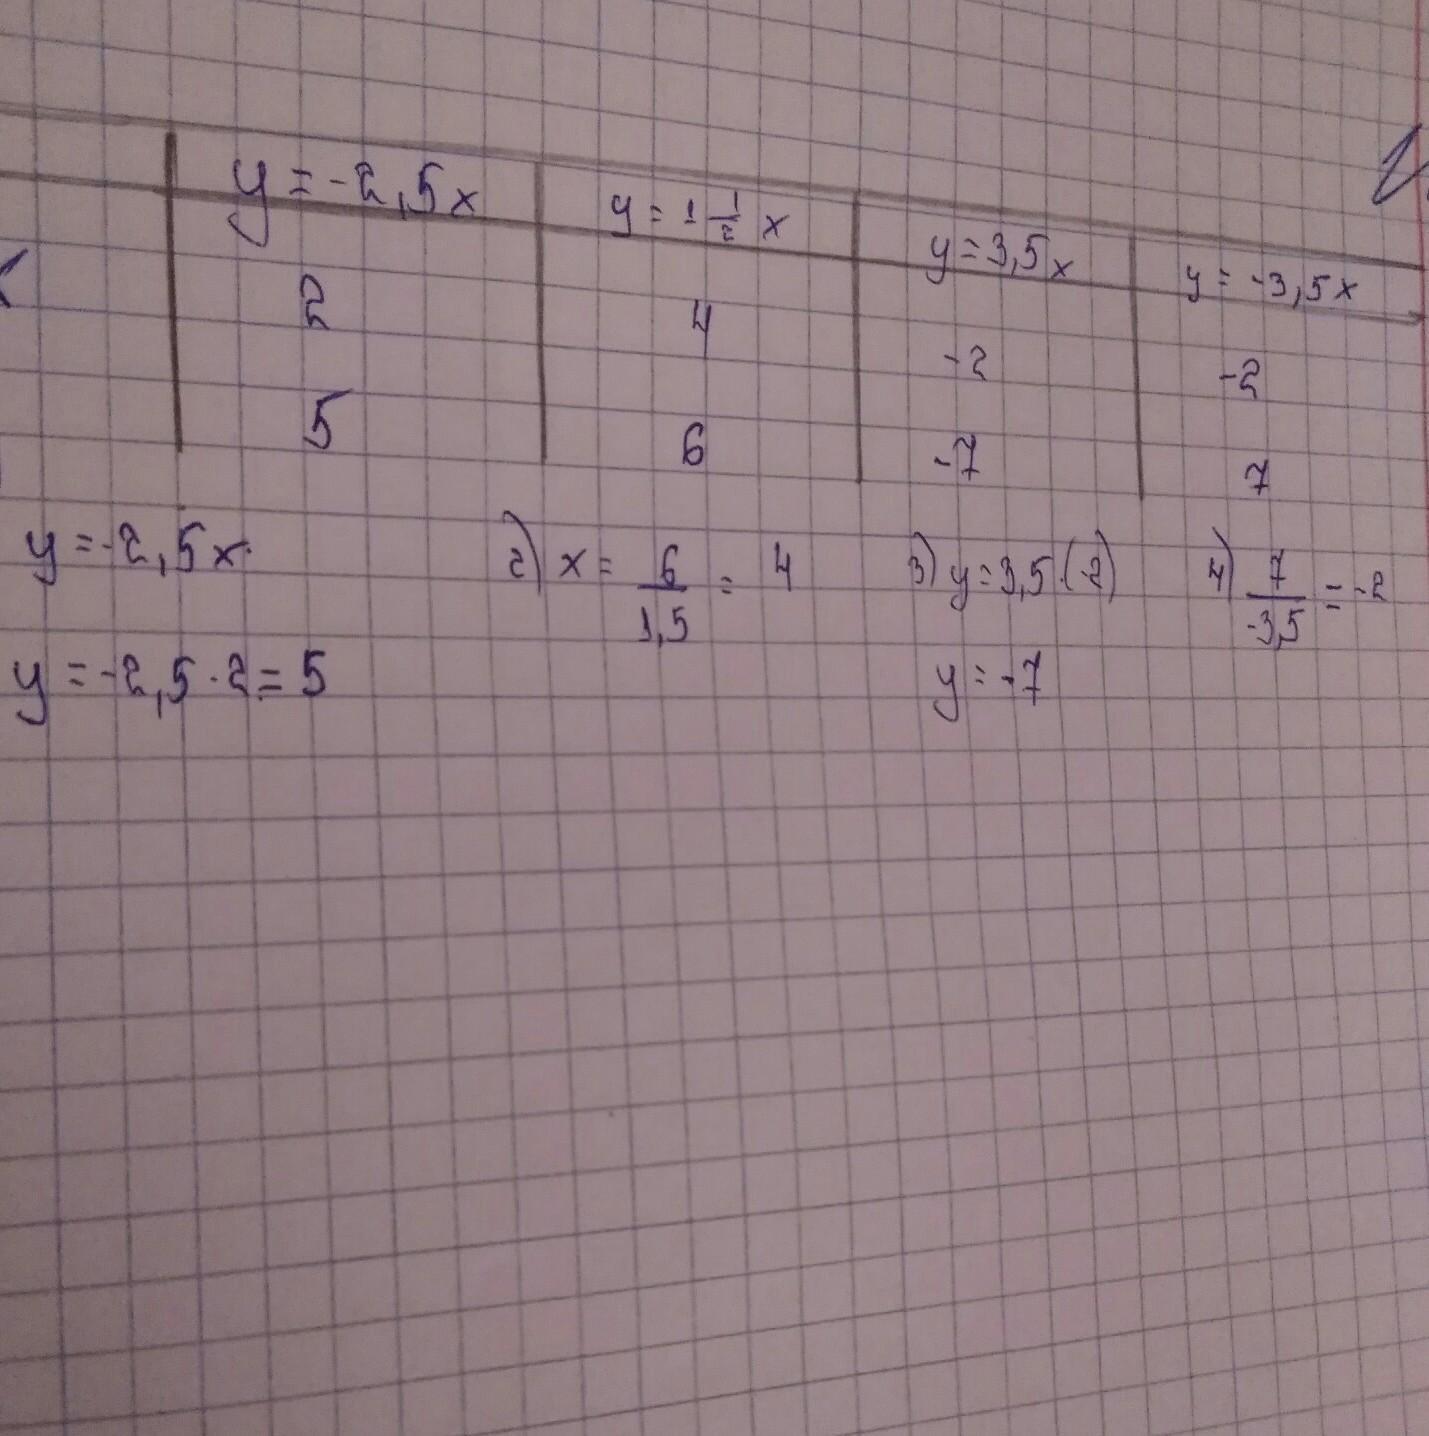 y = -2,5x y = 1 1/2 x y = 3,5x y = -3,5x
x 2 4 -2 -2
5 6 -7 7
y = -2,5x 2) x = 6/1,5 = 4 3) y = 3,5·(-2) 4) 7/-3,5 = -2
y = -2,5 · 2 = 5 y = -7